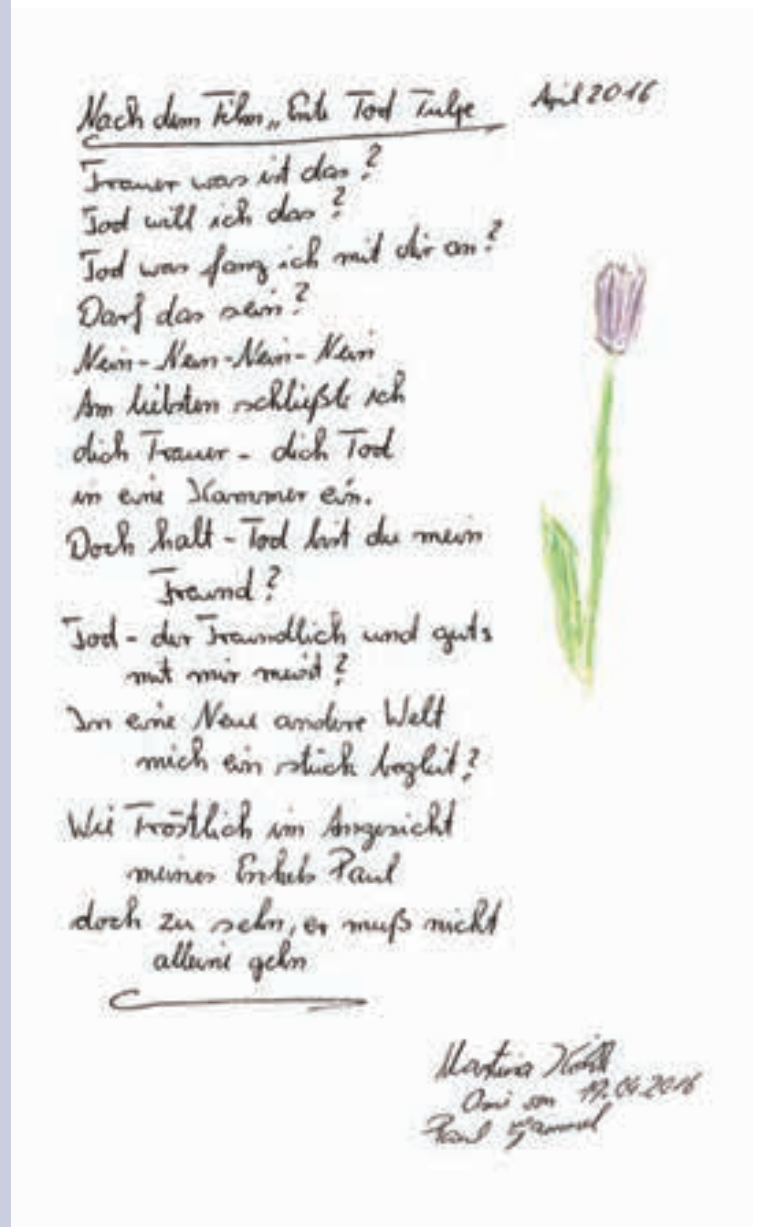 Nach dem Film „Ente Tod Tulpe April 2016
Trauer was ist das?
Tod will ich das?
Tod was fang ich mit dir an?
Darf das sein?
Nein - Nein - Nein - Nein
Am liebsten schließte ich
dich Trauer - dich Tod
in eine Kammer ein.
Doch halt - Tod bist du mein
Freund?
Tod - der Freundlich und guts
mit mir meint?
In eine Neue andere Welt
mich ein stück begleit?
Wie Tröstlich im Angesicht
meines Enkels Paul
doch zu sehn, er muß nicht
alleine gehn
Martina
Omi von 19.04.2016
Paul